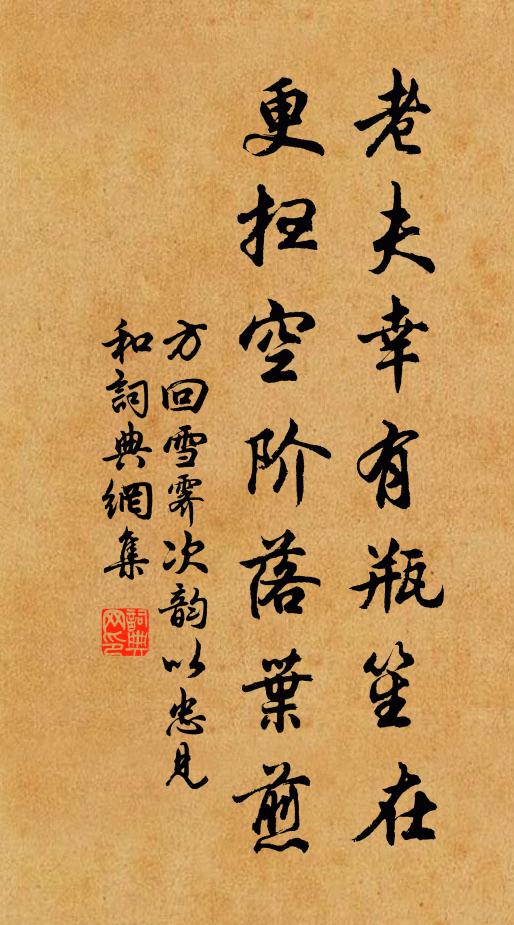 老夫幸有瓶笙在
更扫空阶落葉煎
方回雪霁次韵以忠見
和詞典網集
詞典网印